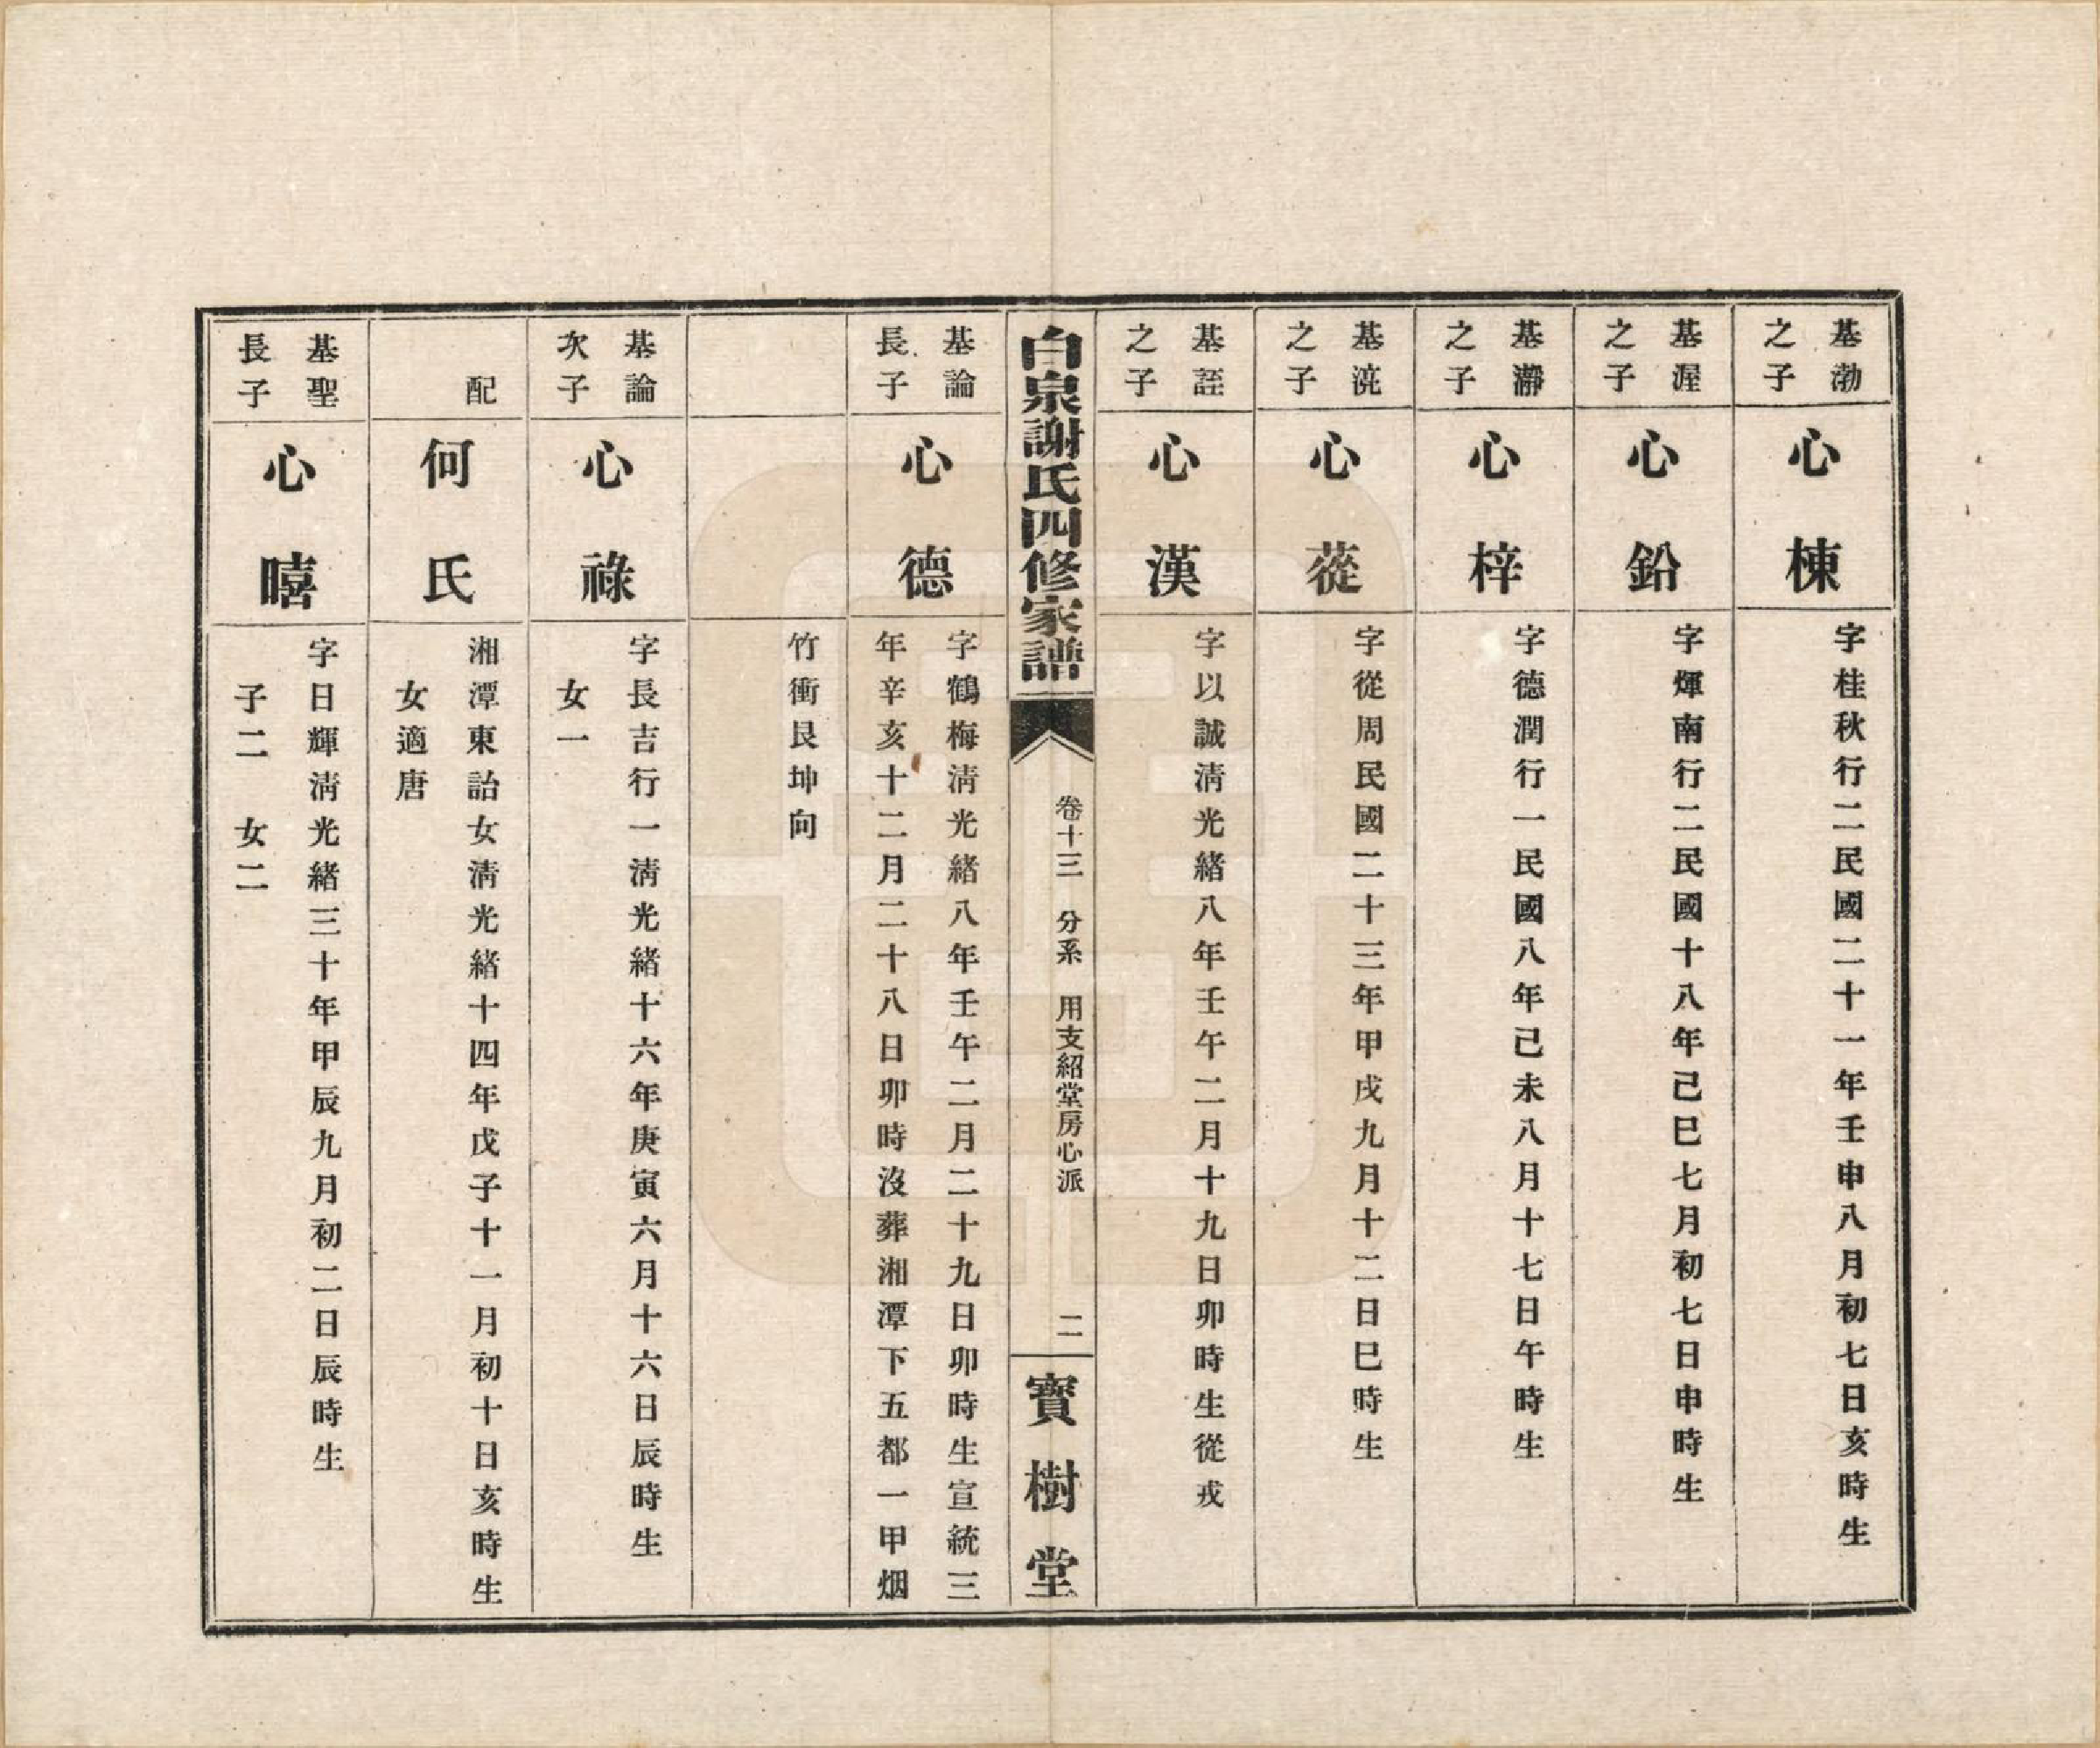 基渤
之子
心棟
字桂秋行二民國二十一年壬申八月初七日亥時生
基渥
之子
心鉛
字煇南行二民國十八年己巳七月初七日申時生
基瀞
之子
心梓
字德潤行一民國八年己未八月十七日午時生
基㳘
之子
心蓯
字從周民國二十三年甲戌九月十二日巳時生
基誙
之子
心漢
字以誠淸光緒八年壬午二月十九日卯時生從戎
白泉謝氏四修家譜
卷十三 分系 用支紹堂房心派
二
寶樹堂
基論
長子
心德
字鶴梅淸光緒八年壬午二月二十九日卯時生宣統三
年辛亥十二月二十八日卯時沒葬湘潭下五都一甲烟
竹衝艮坤向
基論
次子
心祿
字長吉行一淸光緒十六年庚寅六月十六日辰時生
女一
配
何氏
湘潭東詒女淸光緒十四年戊子十一月初十日亥時生
女適唐
基聖
長子
心嘻
字日輝淸光緒三十年甲辰九月初二日辰時生
子二 女二